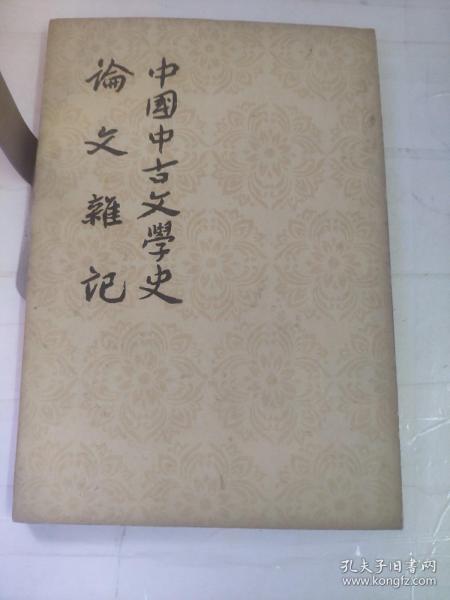 中國中古文學史
論文雜記
孔夫子旧书网
www.kongfz.com